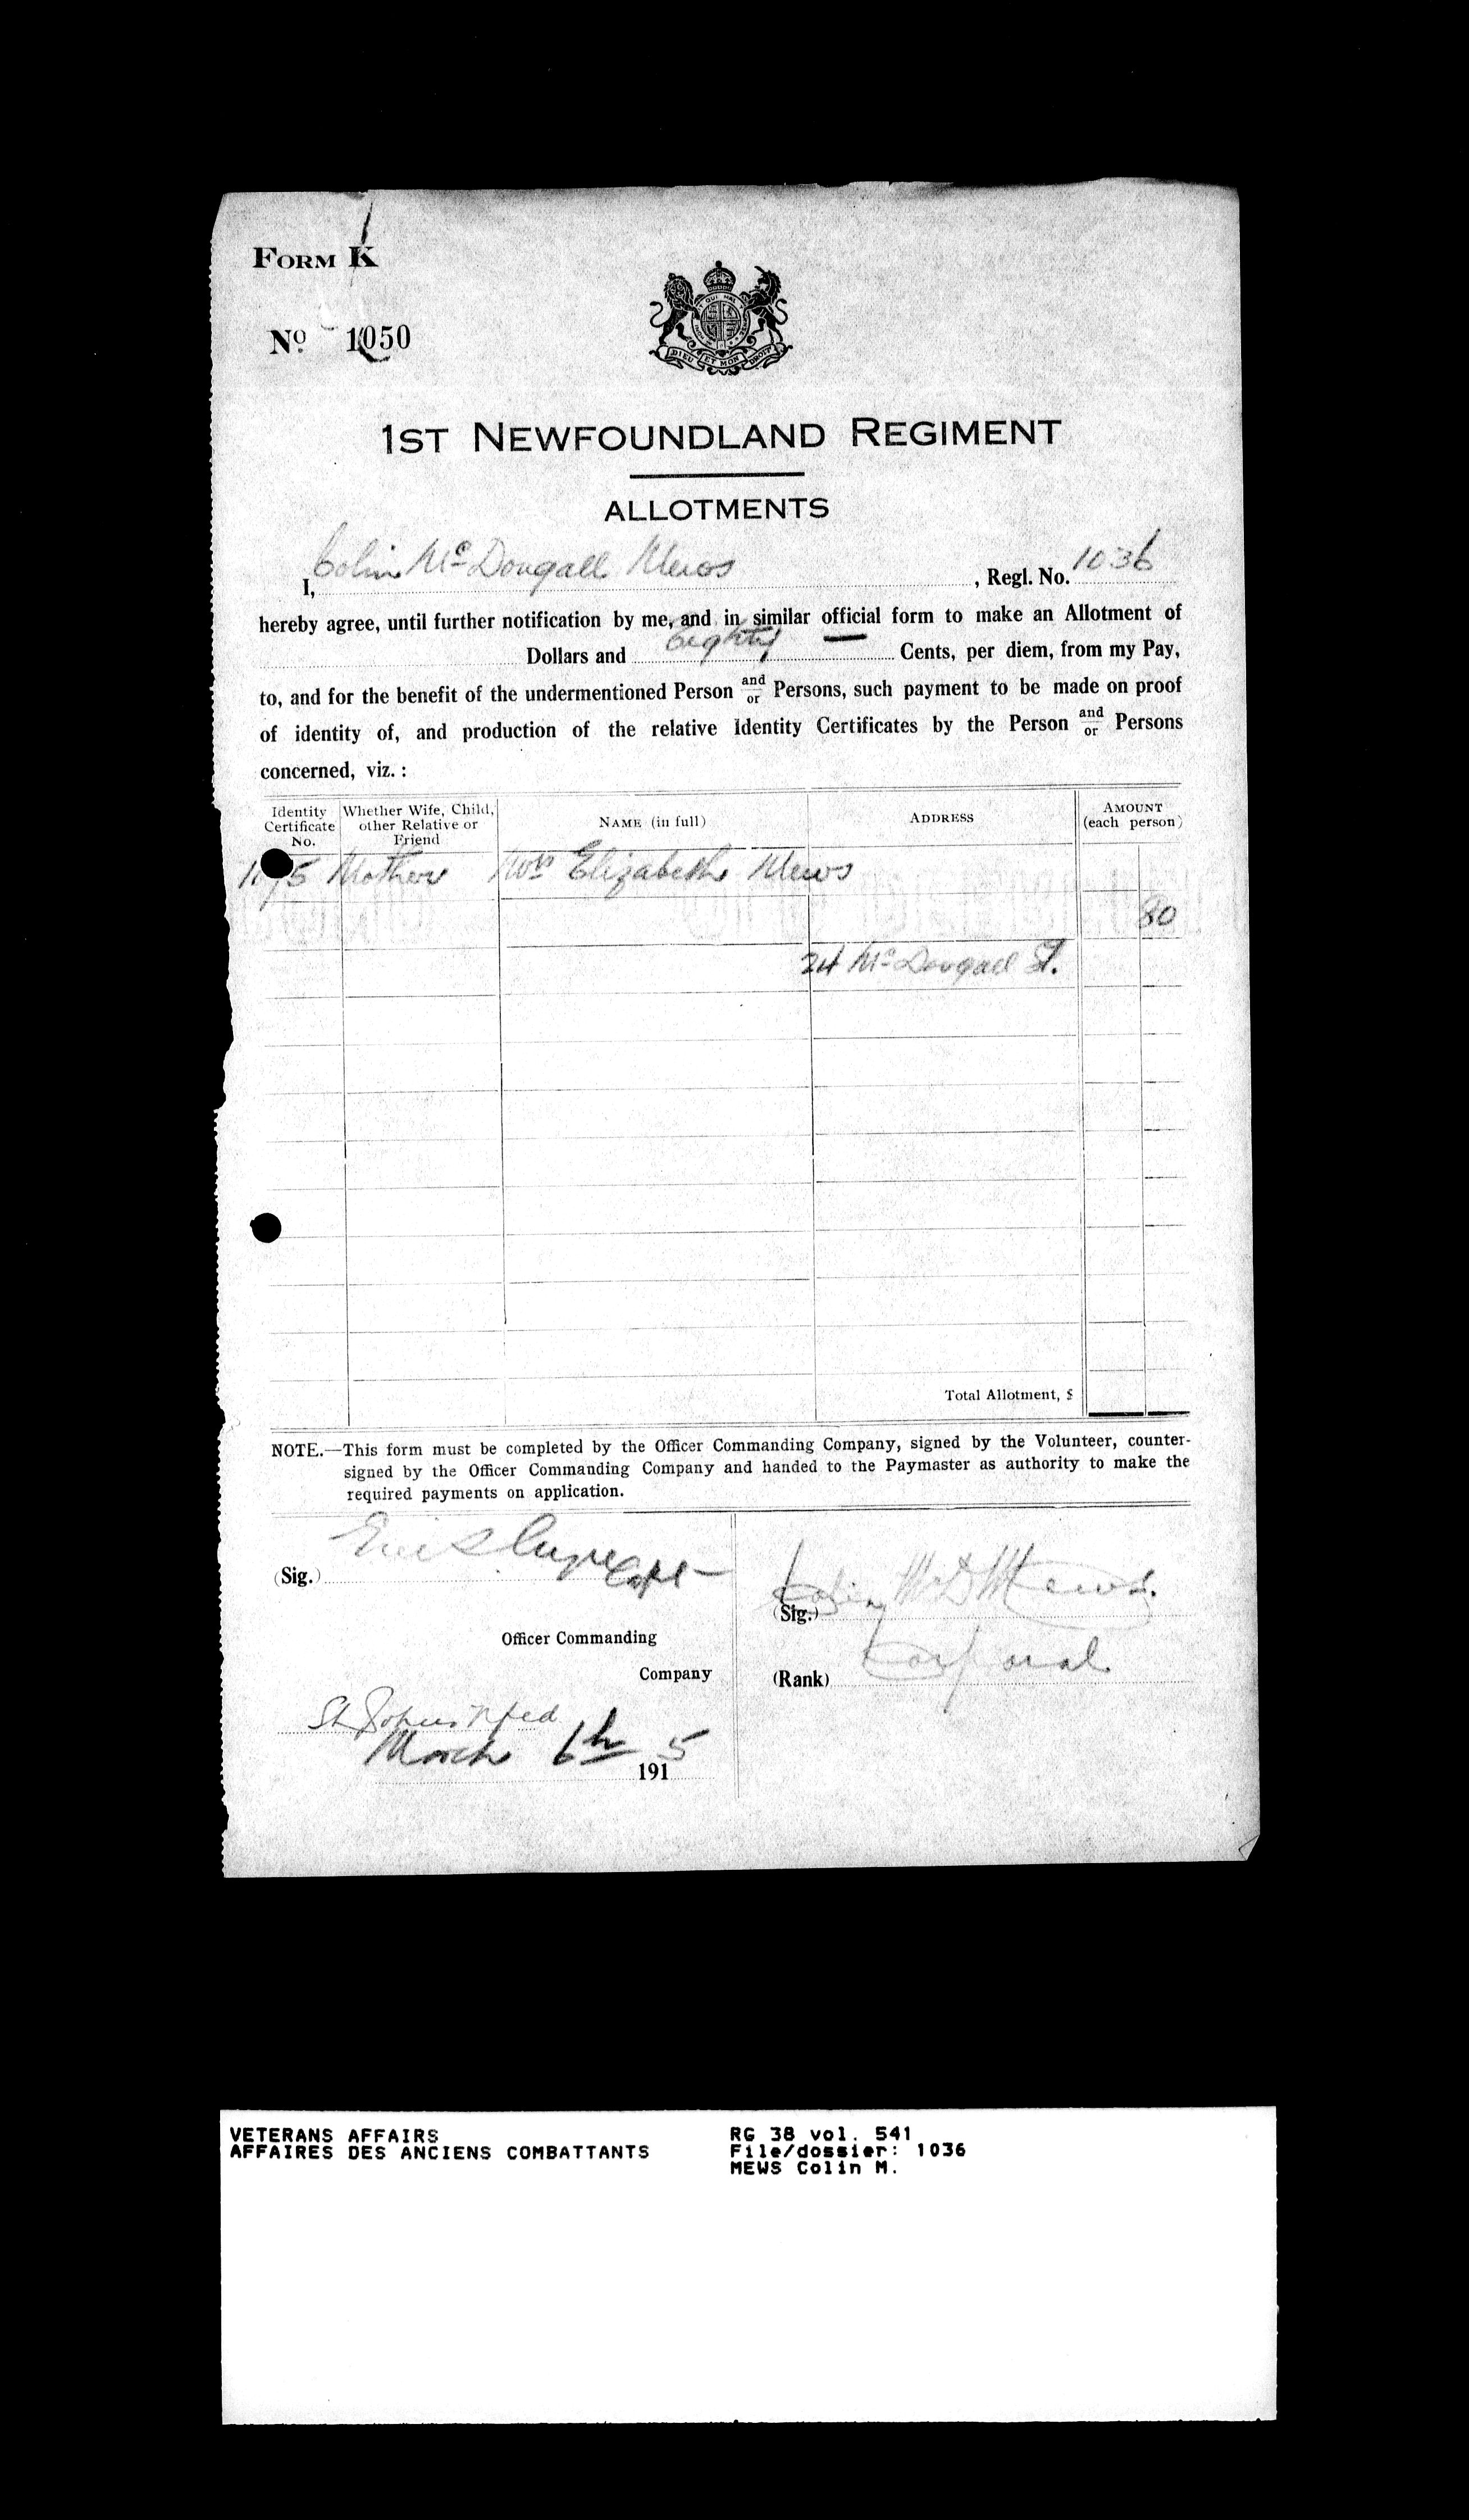 FORM K
Nº 1050
DIEU ET MON DROIT
1ST NEWFOUNDLAND REGIMENT
ALLOTMENTS
I, Colin McDougall Mews, Regl. No. 1036
hereby agree, until further notification by me, and in similar official form to make an Allotment of
Dollars and Eighty — Cents, per diem, from my Pay,
to, and for the benefit of the undermentioned Person and/or Persons, such payment to be made on proof
of identity of, and production of the relative Identity Certificates by the Person and/or Persons
concerned, viz. :
Identity Certificate No. Whether Wife, Child, other Relative or Friend NAME (in full) ADDRESS AMOUNT (each person)
Mother Mrs Elizabeth Mews
80
24 McDougall St.
Total Allotment, $
NOTE.—This form must be completed by the Officer Commanding Company, signed by the Volunteer, counter-
signed by the Officer Commanding Company and handed to the Paymaster as authority to make the
required payments on application.
(Sig.) Capt
(Sig.) Colin McD Mews.
Officer Commanding
Company
(Rank) Corporal
St Johns Nfld
March 6th 1915
VETERANS AFFAIRS RG 38 vol. 541
AFFAIRES DES ANCIENS COMBATTANTS File/dossier: 1036
MEWS Colin M.